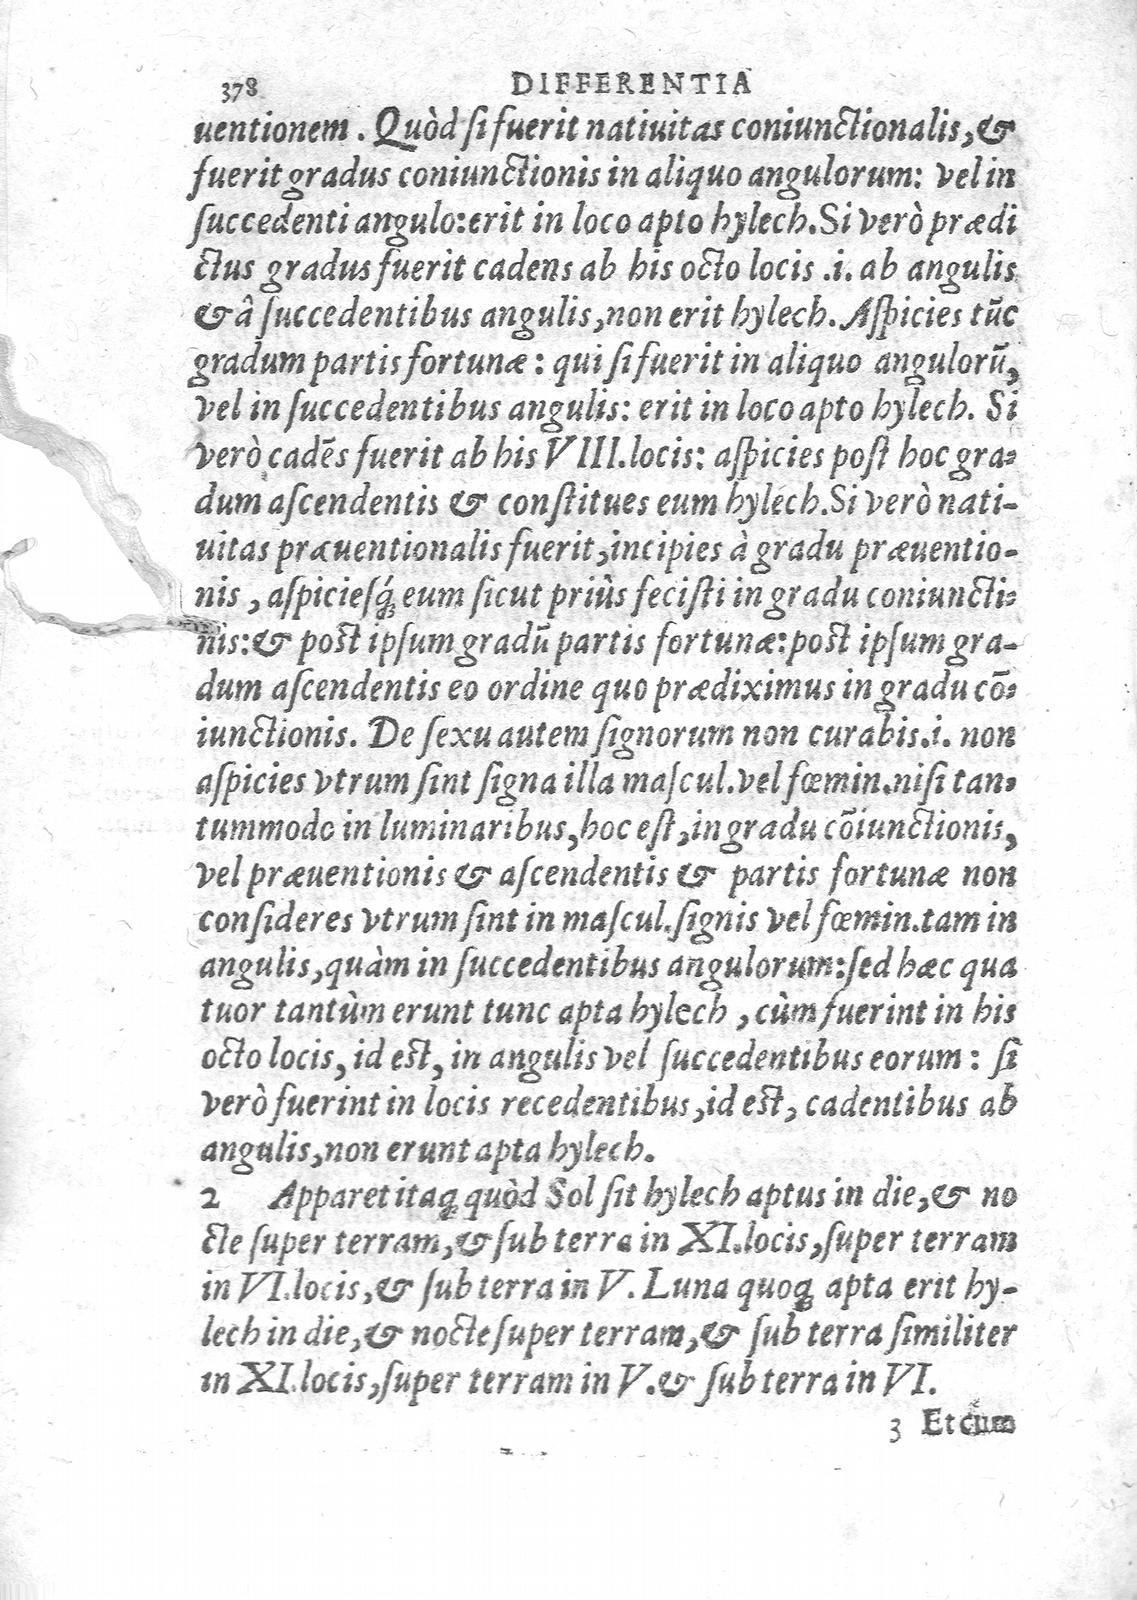 378 DIFFERENTIA
uentionem. Quòd ſi fuerit natiuitas coniunctionalis, &
fuerit gradus coniunctionis in aliquo angulorum: vel in
ſuccedenti angulo: erit in loco apto hylech. Si verò prædi
ctus gradus fuerit cadens ab his octo locis .i. ab angulis
& â ſuccedentibus angulis, non erit hylech. Aſpicies tũc
gradum partis fortunæ: qui ſi fuerit in aliquo angulorũ,
vel in ſuccedentibus angulis: erit in loco apto hylech. Si
verò cadẽs fuerit ab his VIII. locis: aſpicies poſt hoc gra-
dum aſcendentis & conſtitues eum hylech. Si verò nati-
uitas præuentionalis fuerit, incipies à gradu præuentio-
nis, aſpicieſq́; eum ſicut priùs feciſti in gradu coniuncti-
nis: & poſt ipſum gradũ partis fortunæ: poſt ipſum gra-
dum aſcendentis eo ordine quo prædiximus in gradu cõ-
iunctionis. De ſexu autem ſignorum non curabis .i. non
aſpicies vtrum ſint ſigna illa maſcul. vel fœmin. niſi tan-
tummodo in luminaribus, hoc eſt, in gradu cõiunctionis,
vel præuentionis & aſcendentis & partis fortunæ non
conſideres vtrum ſint in maſcul. ſignis vel fœmin. tam in
angulis, quàm in ſuccedentibus angulorum: ſed hæc qua
tuor tantùm erunt tunc apta hylech, cùm fuerint in his
octo locis, id eſt, in angulis vel ſuccedentibus eorum: ſi
verò fuerint in locis recedentibus, id eſt, cadentibus ab
angulis, non erunt apta hylech.
2 Apparet itaq; quòd Sol ſit hylech aptus in die, & no
cte ſuper terram, & ſub terra in XI. locis, ſuper terram
in VI. locis, & ſub terra in V. Luna quoq; apta erit hy-
lech in die, & nocte ſuper terram, & ſub terra ſimiliter
in XI. locis, ſuper terram in V. & ſub terra in VI.
3 Et cum